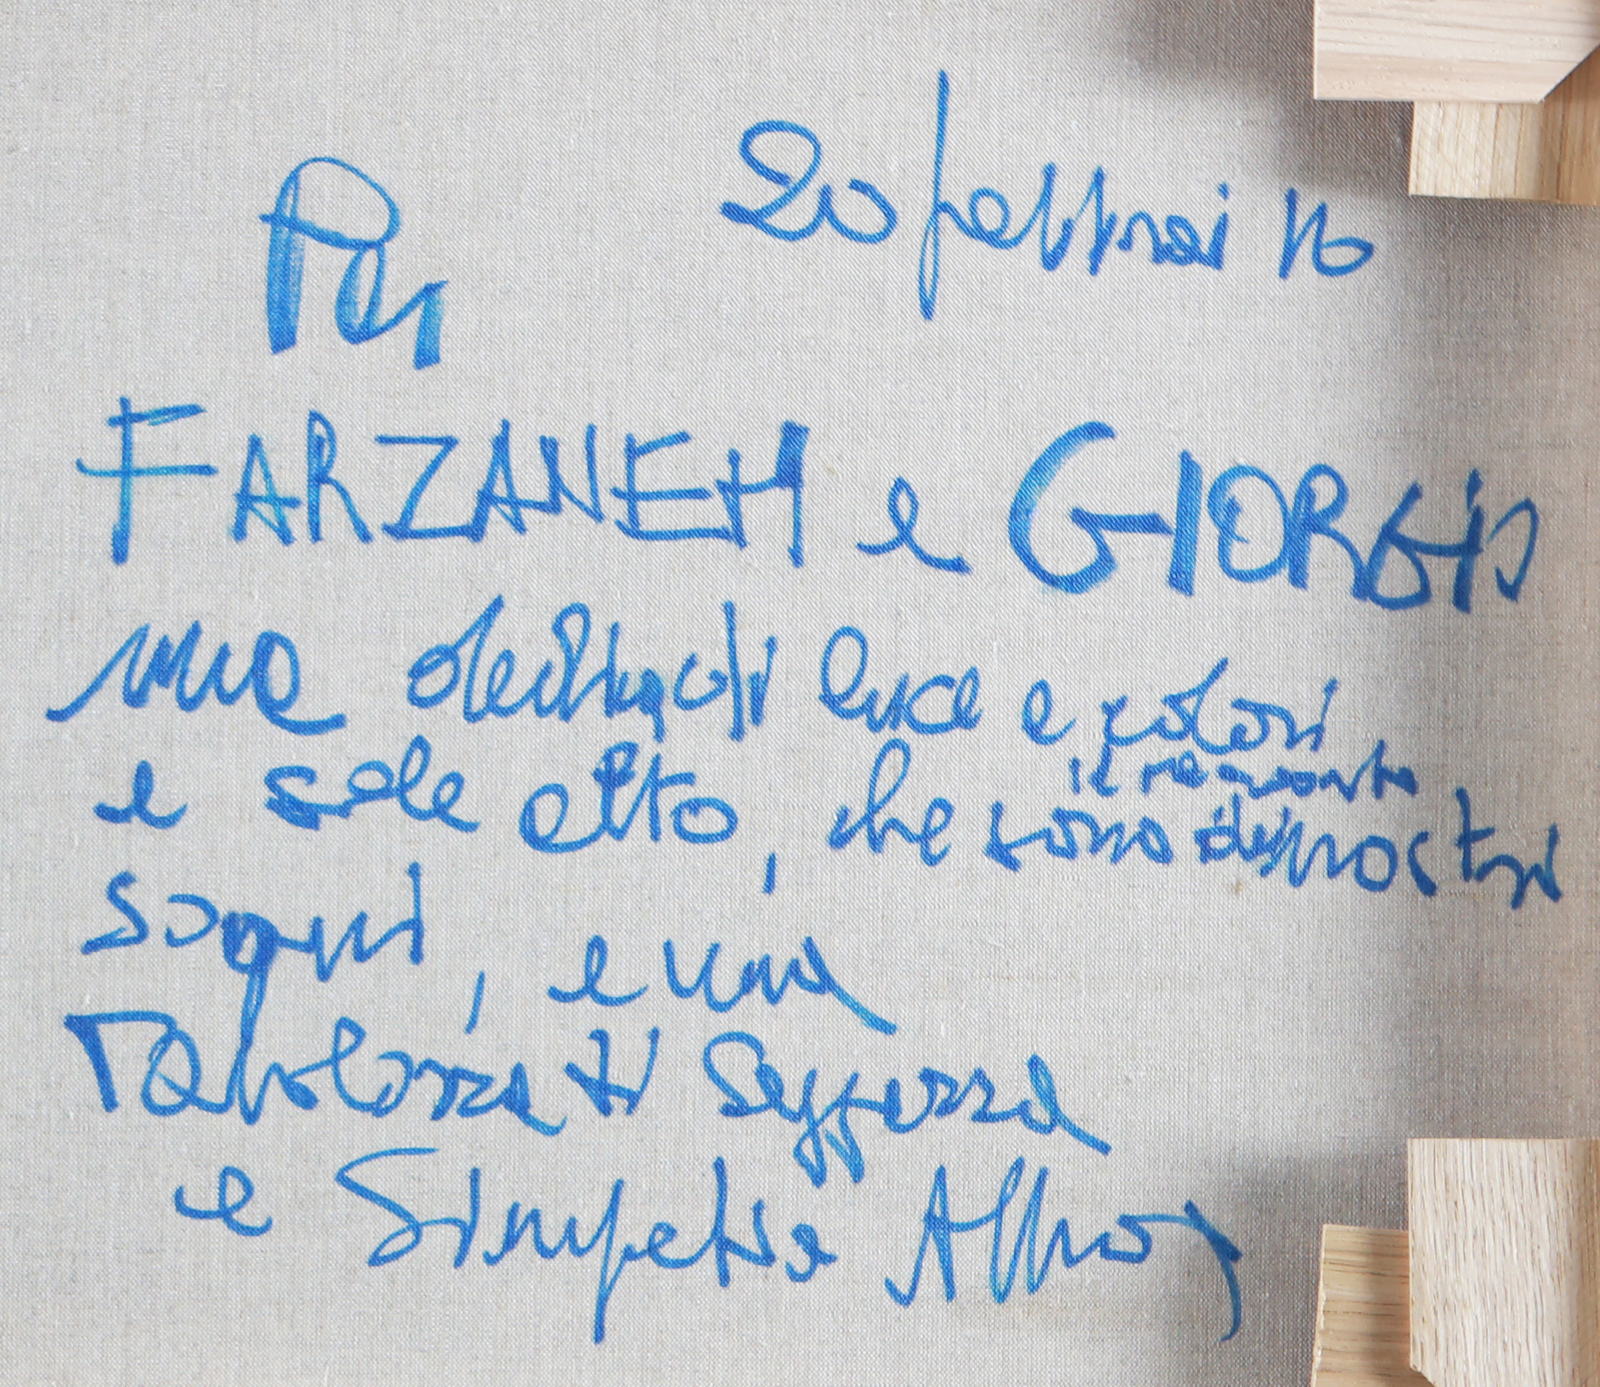 20 febbraio 16
Per
FARZANEH e GIORGIO
una luce e colori
e sole alto, che sono dei nostri
il racconto
sogni, e una
Tavolozza di saggezza
e Simpatia Athos